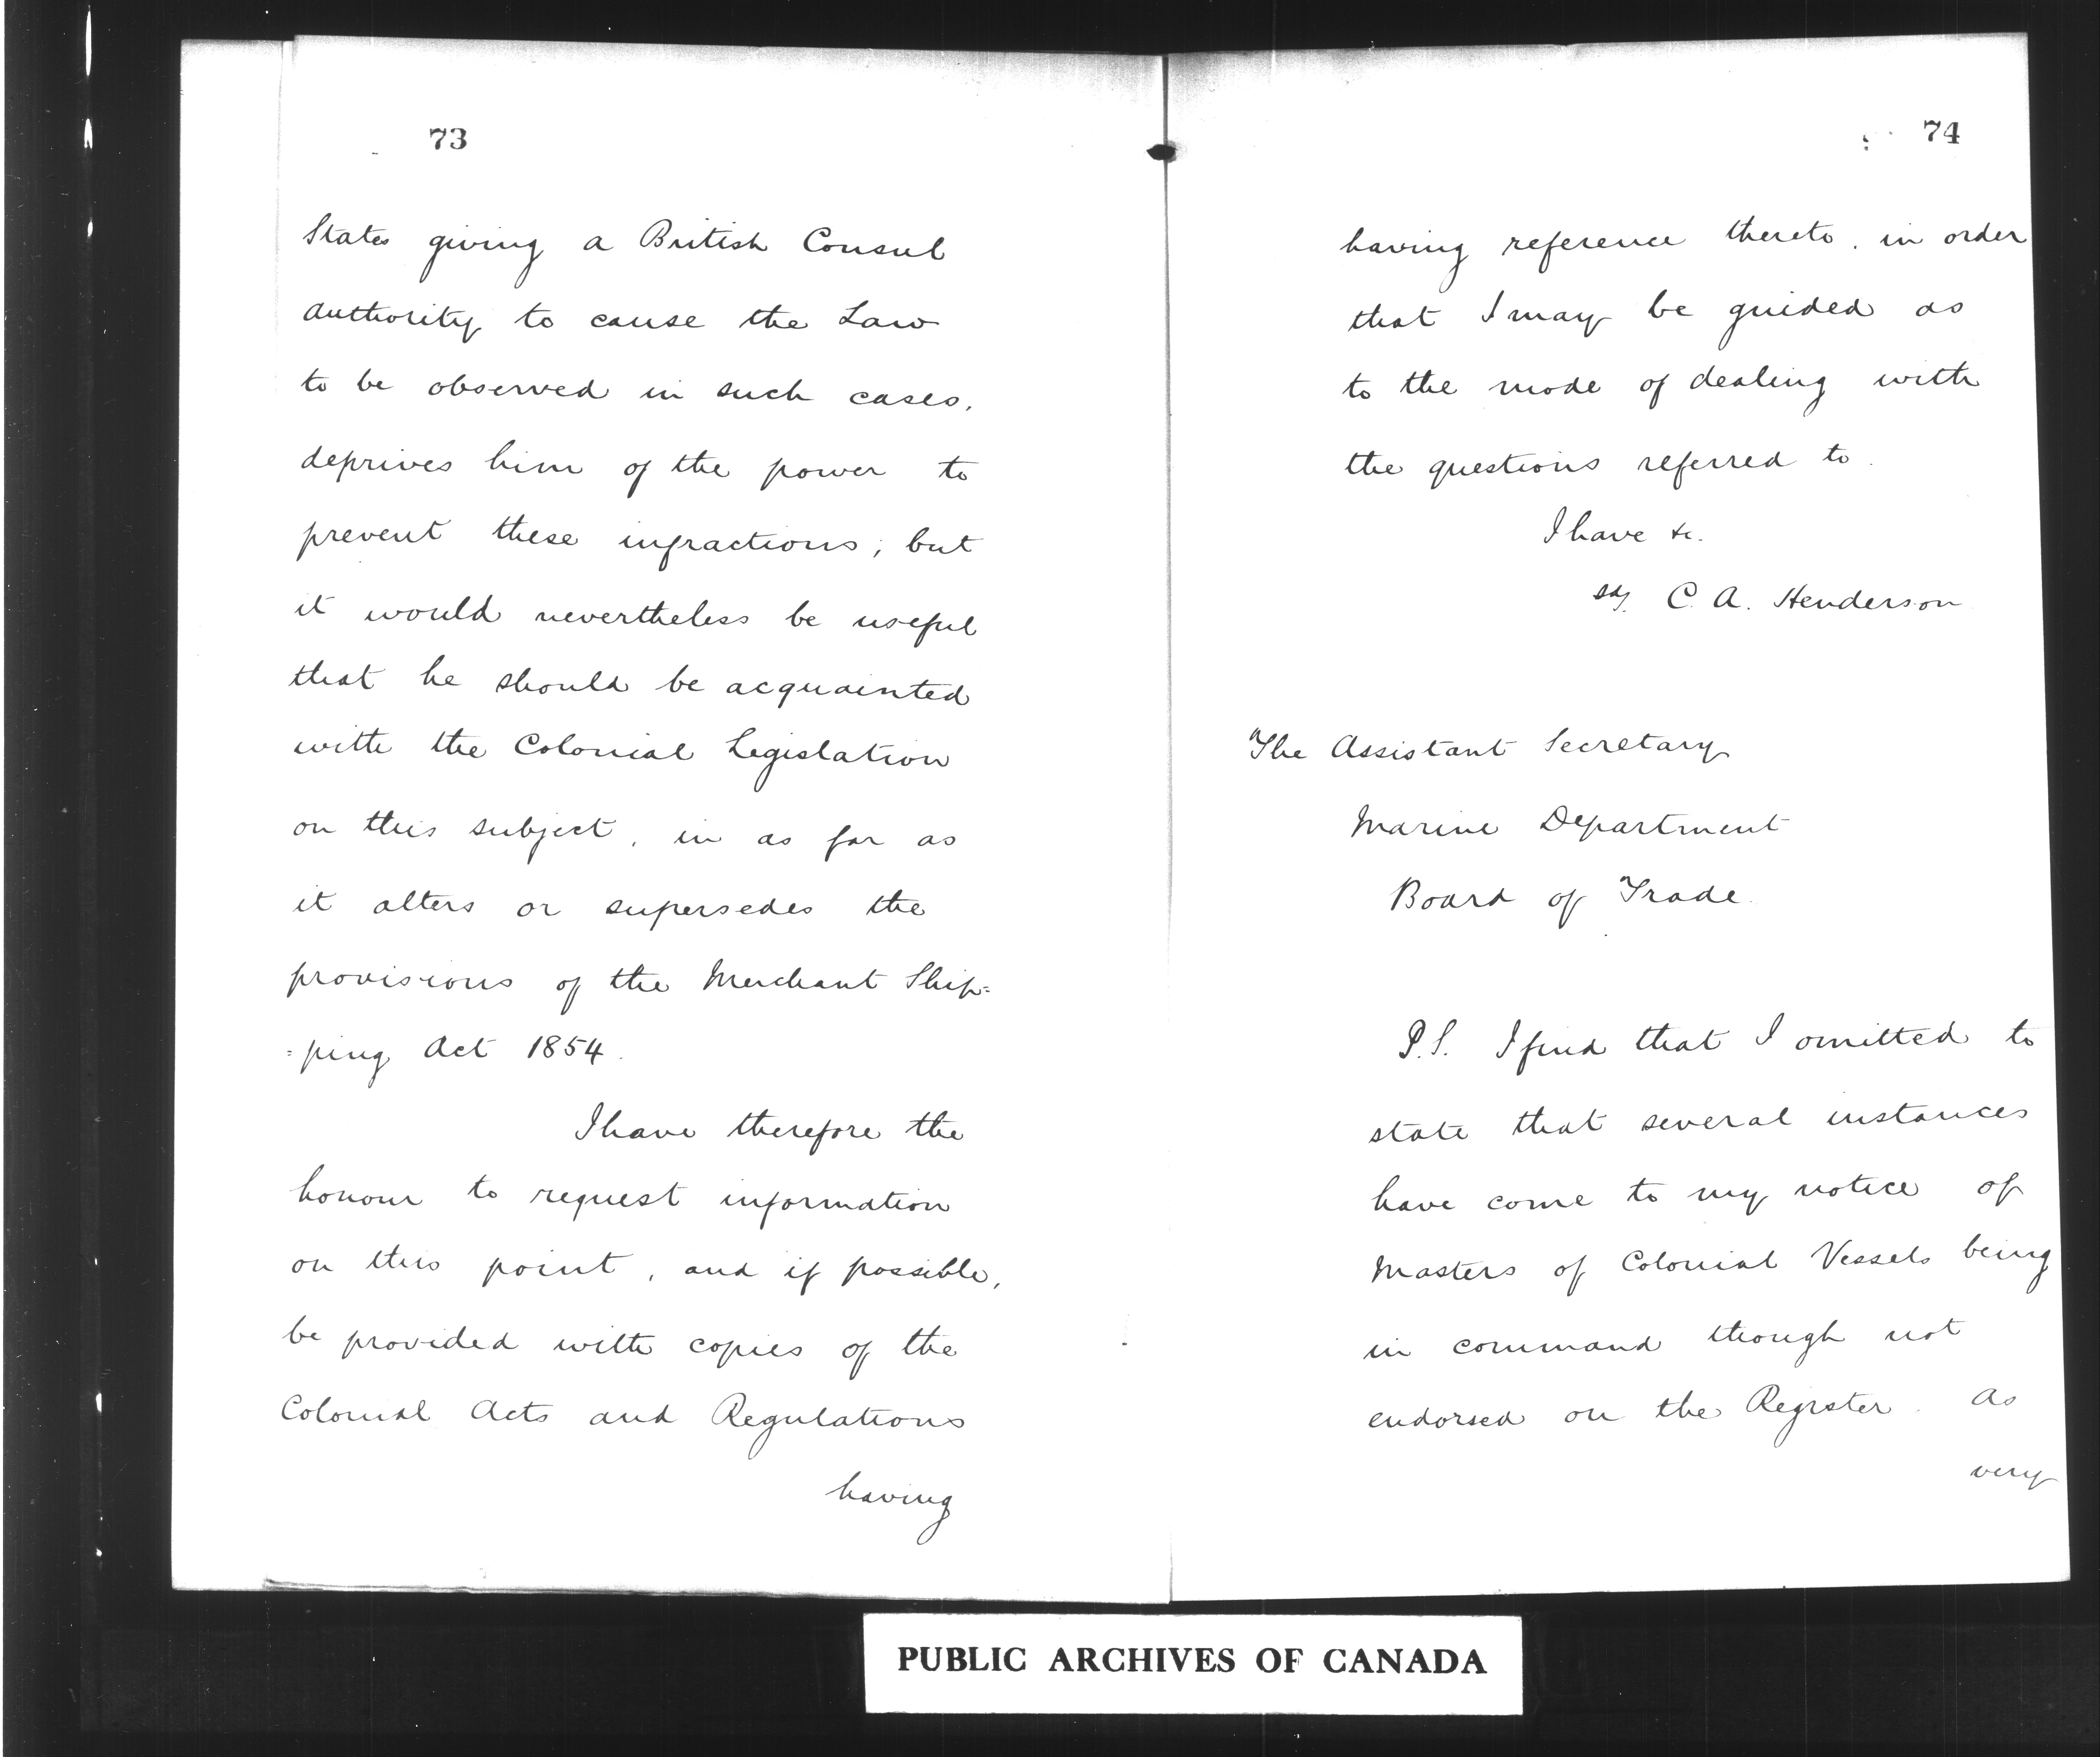 73
States giving a British Consul
authority to cause the Law
to be observed in such cases,
deprives him of the power to
prevent these infractions; but
it would nevertheless be useful
that he should be acquainted
with the Colonial Legislation
on this subject, in as far as
it alters or supersedes the
provisions of the Merchant Ship=
=ping Act 1854.
I have therefore the
honour to request information
on this point, and if possible,
be provided with copies of the
Colonial Acts and Regulations
having
74
having reference thereto, in order
that I may be guided as
to the mode of dealing with
the questions referred to.
I have &c.
sd/. C. A. Henderson
The Assistant Secretary
Marine Department
Board of Trade.
P.S. I find that I omitted to
state that several instances
have come to my notice of
Masters of Colonial Vessels being
in command though not
endorsed on the Register. As
very
PUBLIC ARCHIVES OF CANADA